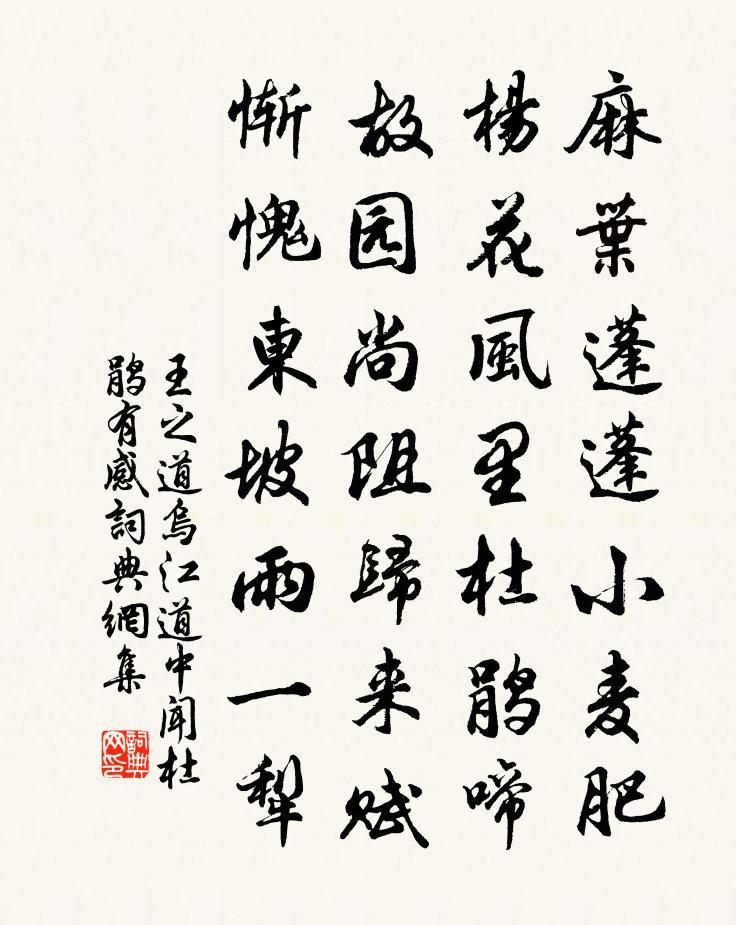 麻葉蓬蓬小麦肥
楊花風里杜鹃啼
故园尚阻歸来赋
慚愧東坡雨一犁
王之道烏江道中聞杜
鹃有感詞典網集
詞典
网印